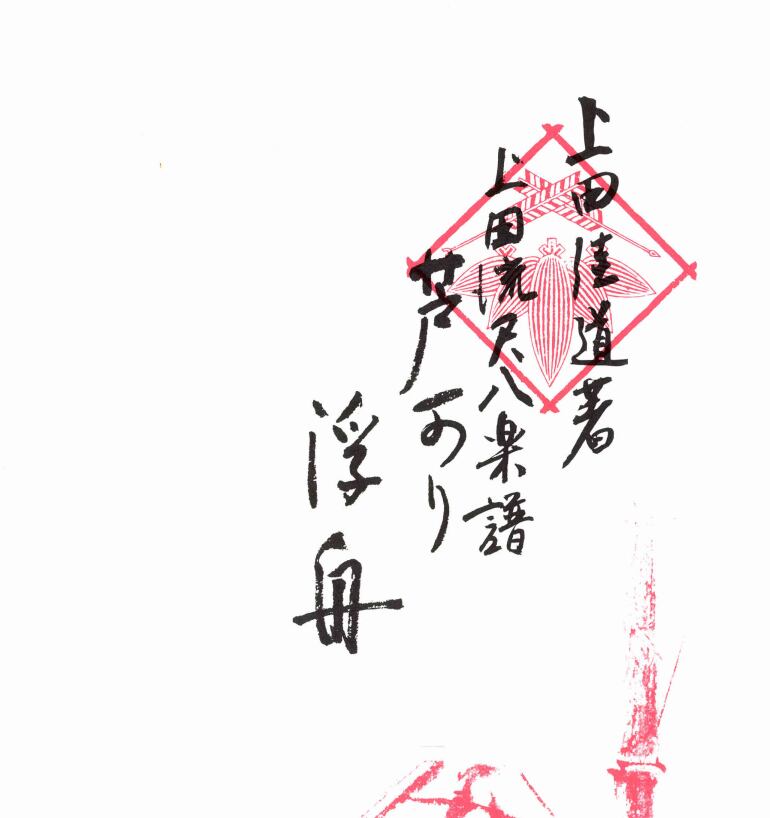 上田佳道著
上田流尺八楽譜
芦かり
浮舟